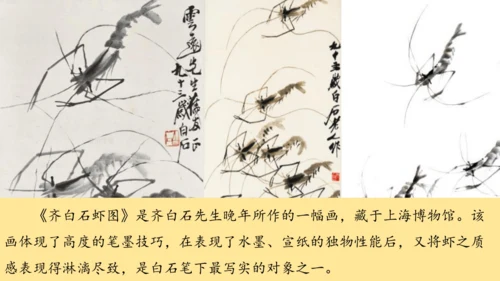 先生
九十三歲白石
九十三歲白石
《齐白石虾图》是齐白石先生晚年所作的一幅画，藏于上海博物馆。该
画体现了高度的笔墨技巧，在表现了水墨、宣纸的独物性能后，又将虾之质
感表现得淋漓尽致，是白石笔下最写实的对象之一。